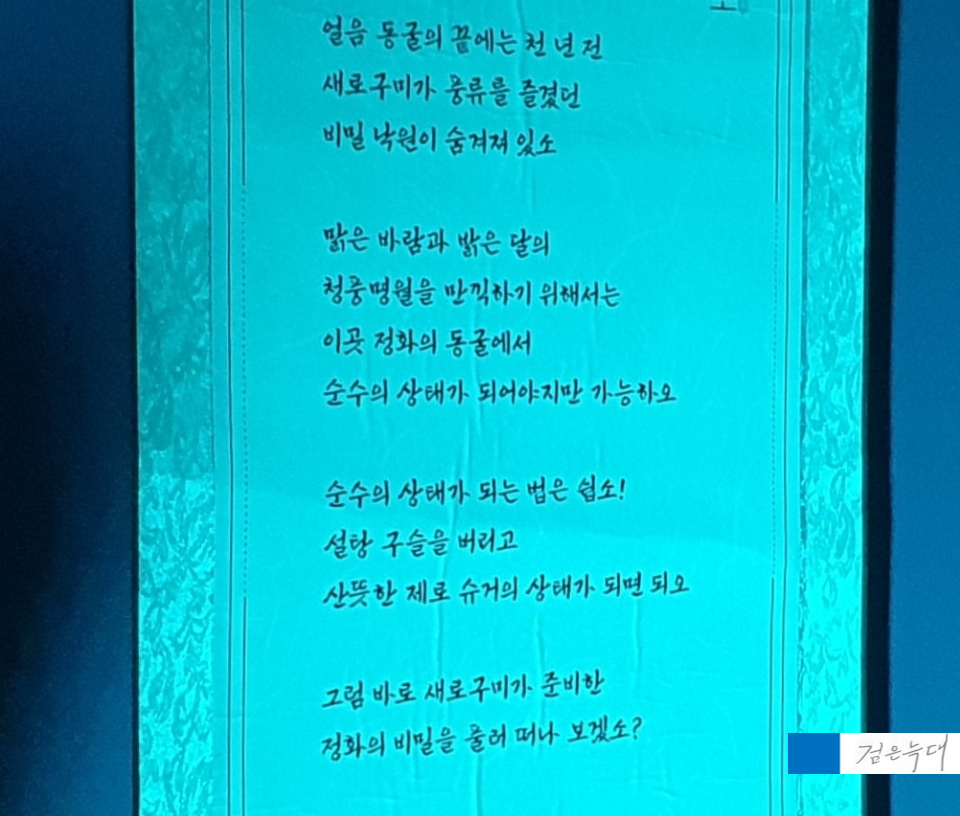 얼음 동굴의 끝에는 천 년 전
새로구미가 풍류를 즐겼던
비밀 낙원이 숨겨져 있소
맑은 바람과 밝은 달의
청풍명월을 만끽하기 위해서는
이곳 정화의 동굴에서
순수의 상태가 되어야지만 가능하오
순수의 상태가 되는 법은 쉽소!
설탕 구슬을 버리고
산뜻한 제로 슈거의 상태가 되면 되오
그럼 바로 새로구미가 준비한
정화의 비밀을 풀러 떠나 보겠소?
검은늑대